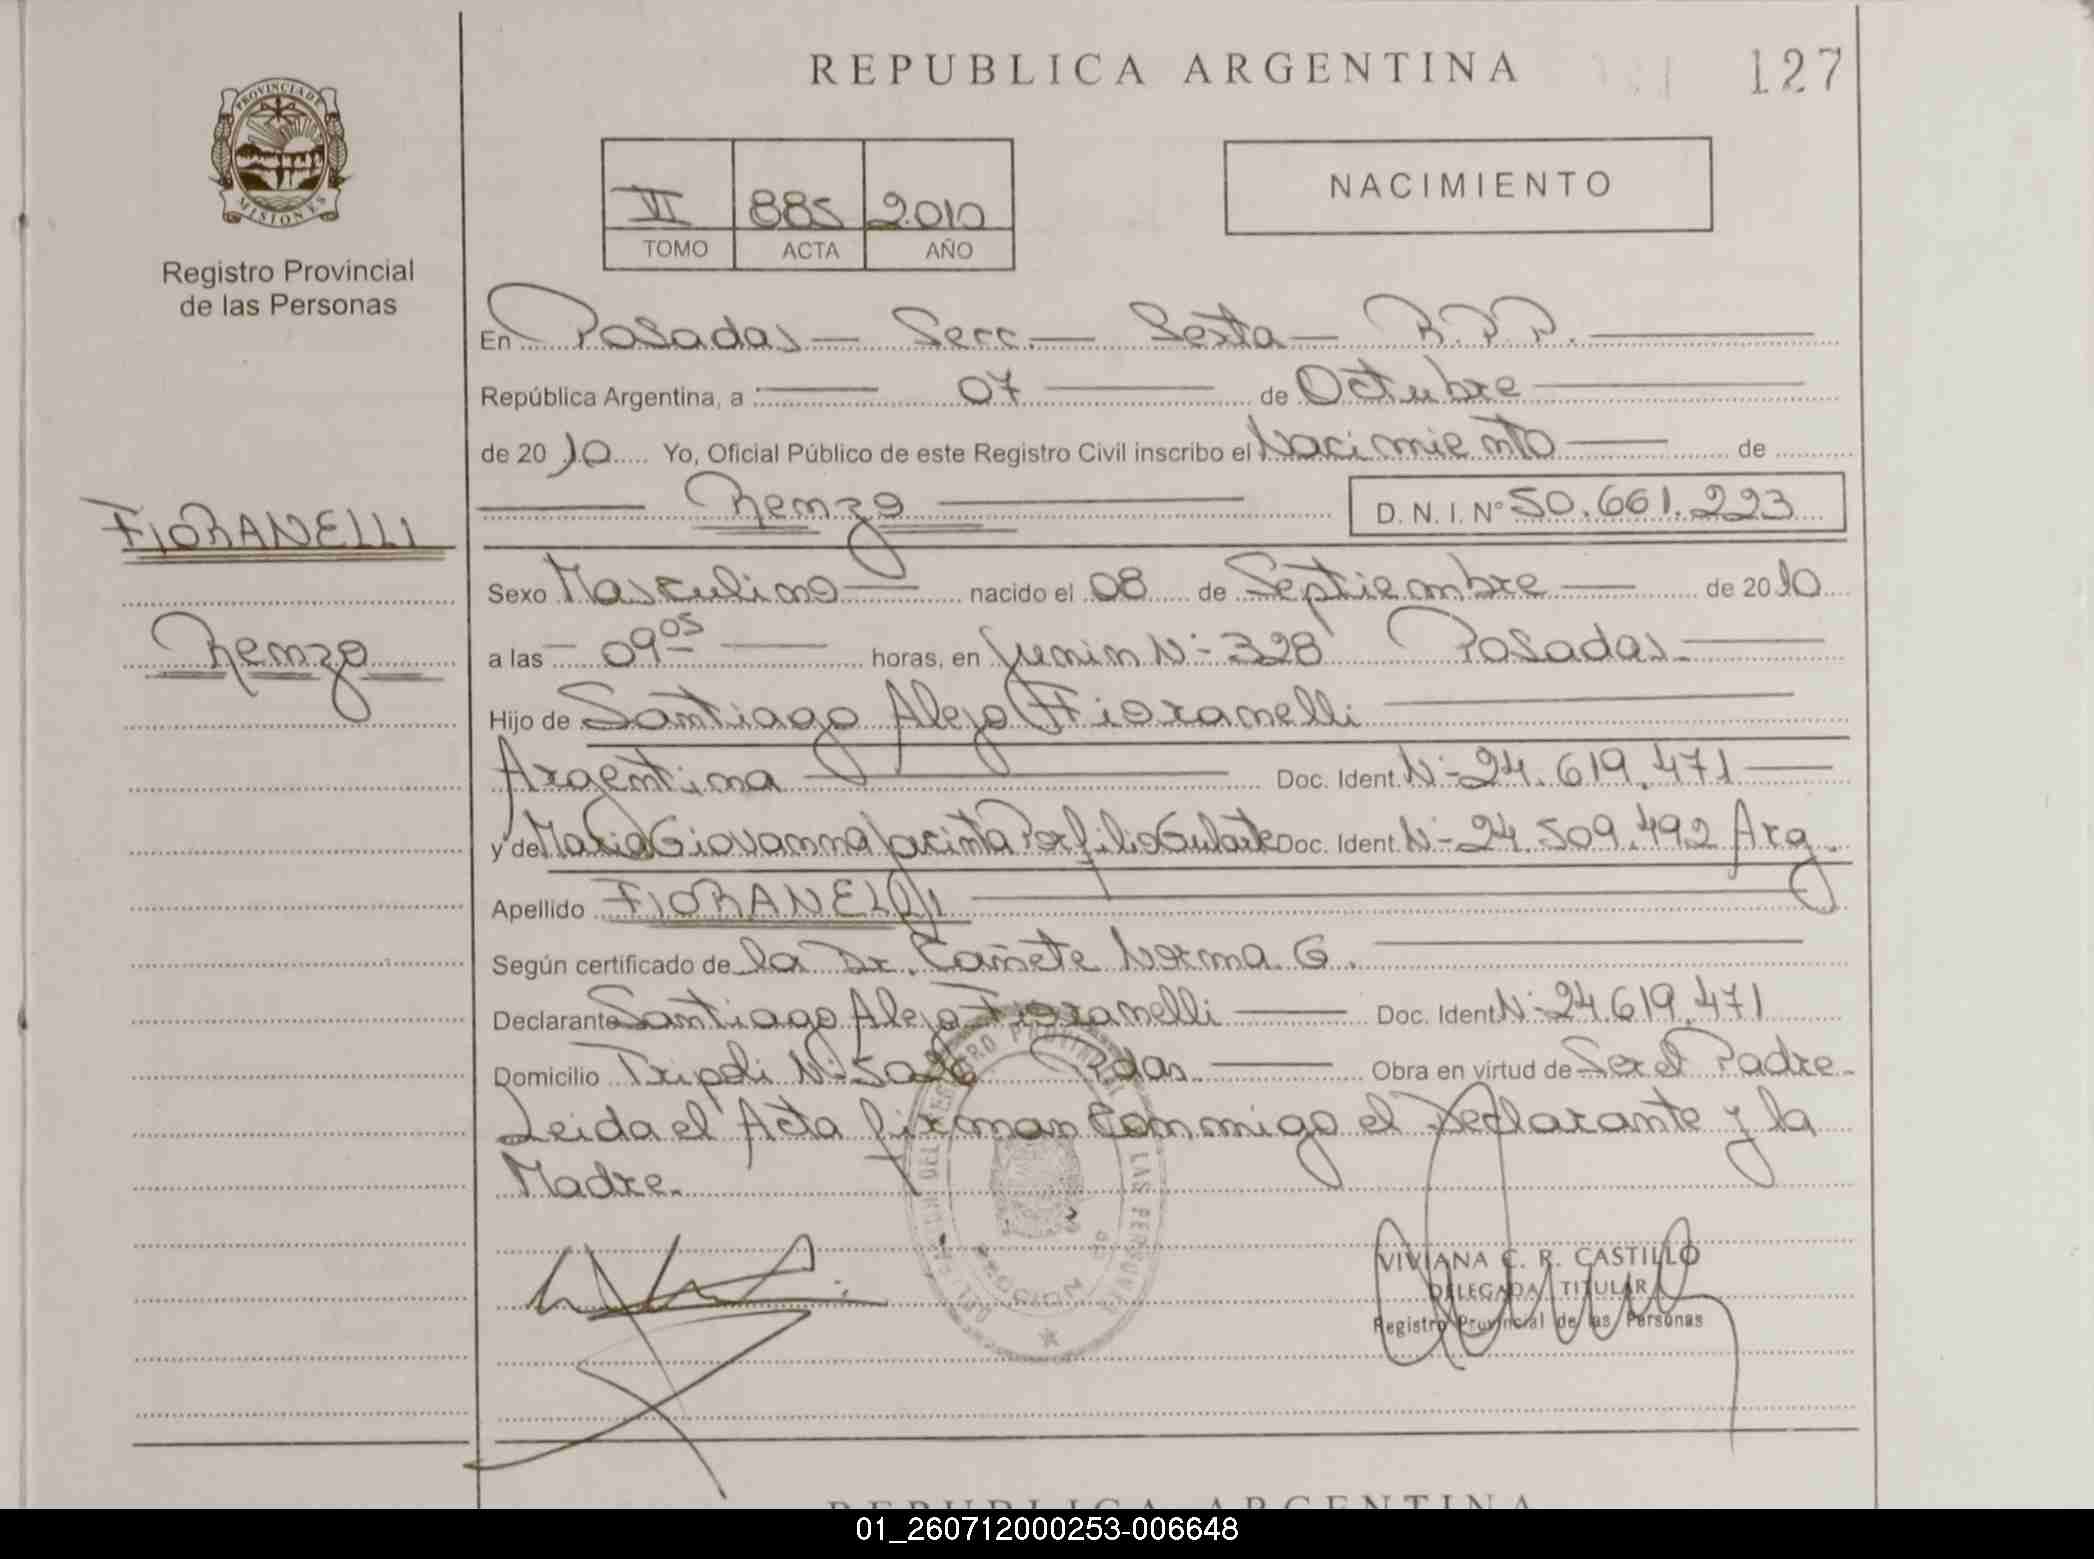 REPUBLICA ARGENTINA
127
PROVINCIA DE MISIONES
Registro Provincial
de las Personas
VI 885 2.010
TOMO ACTA AÑO
NACIMIENTO
En Posadas — Secc. — Sexta — R.P.P.
República Argentina, a 07 de Octubre
de 2010 Yo, Oficial Público de este Registro Civil inscribo el Nacimiento de
Renzo D. N. I. N° 50.661.223
FIORANELLI
Renzo
Sexo Masculino nacido el 08 de Septiembre de 2010
a las 09 05 horas, en Junin N- 328 Posadas
Hijo de Santiago Alejo Fioranelli
Argentina Doc. Ident. N- 24.619.471
y de Maria Giovanna Jacinta Porfilio Gularte Doc. Ident. N- 24.509.492 Arg.
Apellido FIORANELLI
Según certificado de la Dr. Cañete Norma G.
Declarante Santiago Alejo Fioranelli Doc. Ident. N- 24.619.471
Domicilio Tripoli N- Pdas. Obra en virtud de Ser el Padre.
Leida el Acta firman conmigo el Declarante y la
Madre.
VIVIANA C. R. CASTILLO
DELEGADA TITULAR
Registro Provincial de las Personas
REPUBLICA ARGENTINA
01_260712000253-006648